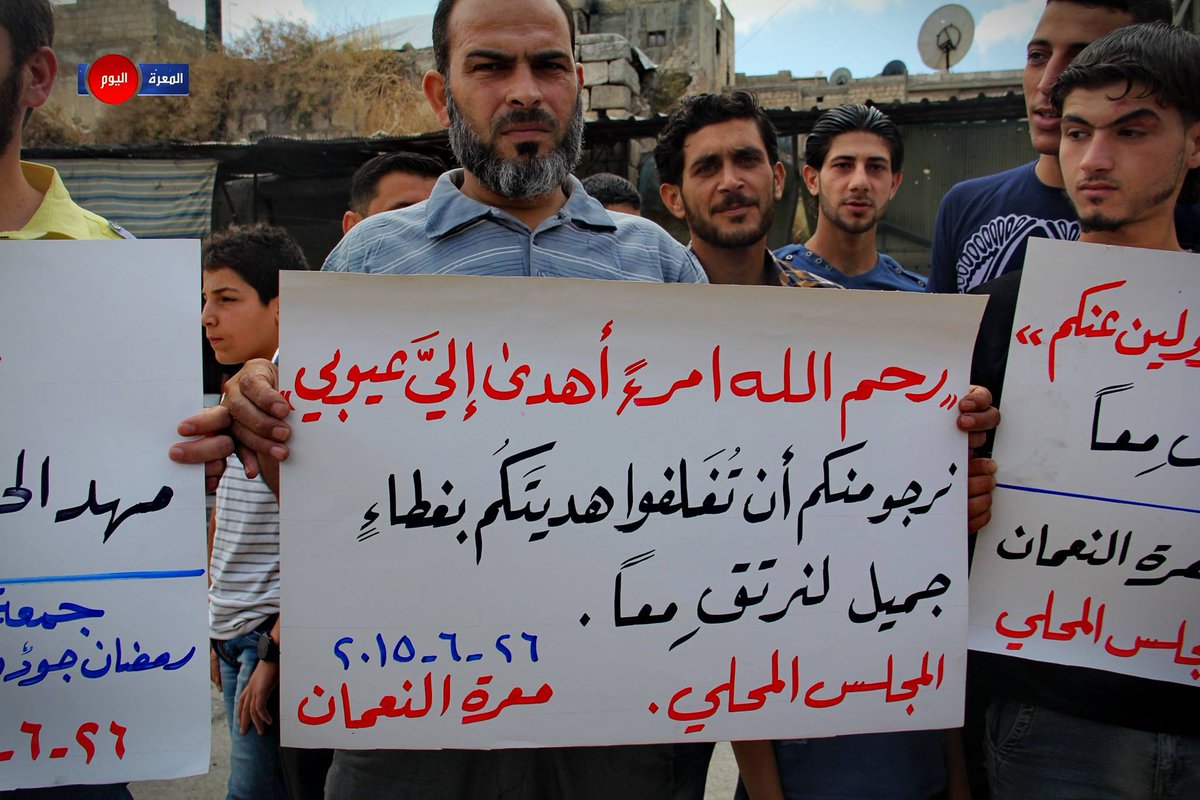 المعرة اليوم
«رحم الله امرءً أهدىٰ إليَّ عيوبي»
نرجو منكم أن تُغَلفوا هديتَكُم بغطاءٍ
جميل لنرتقِ معاً .
المجلس المحلي . ٢٦-٦-٢٠١٥
معرة النعمان
ولين عنكم»
معاً
معرة النعمان
المجلس المحلي
مهد الح
جمعة
رمضان جود
٢٦-٦-